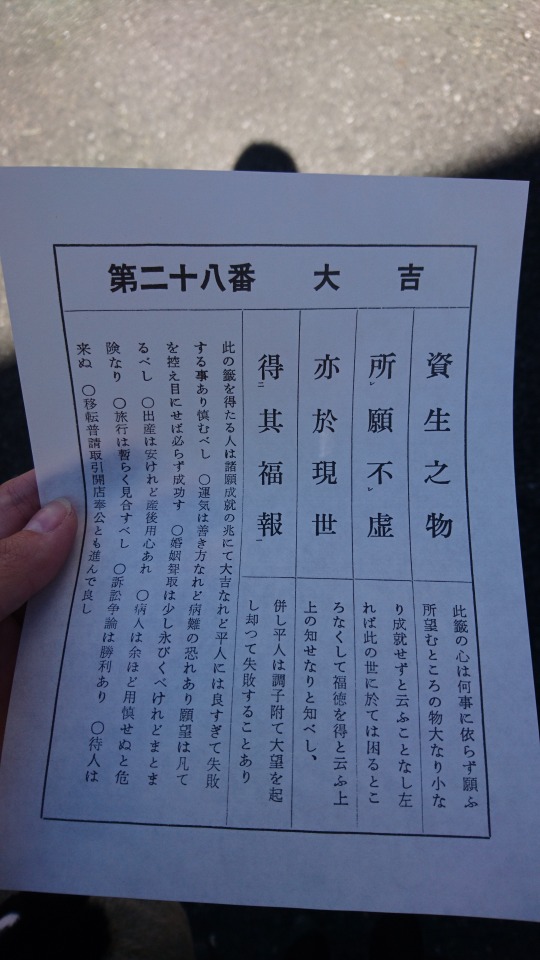 第二十八番 大吉
資生之物
所レ願不レ虚
亦於現世
得二其福報一
此籤の心は何事に依らず願ふ
所望むところの物大なり小な
り成就せずと云ふことなし左
れば此の世に於ては困るとこ
ろなくして福徳を得と云ふ上
上の知せなりと知べし、
併し平人は調子附て大望を起
し却つて失敗することあり
此の籤を得たる人は諸願成就の兆にて大吉なれど平人には良すぎて失敗
する事あり慎むべし 〇運気は善き方なれど病難の恐れあり願望は凡て
を控え目にせば必らず成功す 〇婚姻聟取は少し永びくべけれどまとま
るべし 〇出産は安けれど産後用心あれ 〇病人は余ほど用慎せぬと危
険なり 〇旅行は暫らく見合すべし 〇訴訟争論は勝利あり 〇待人は
来ぬ 〇移転普請取引開店奉公とも進んで良し